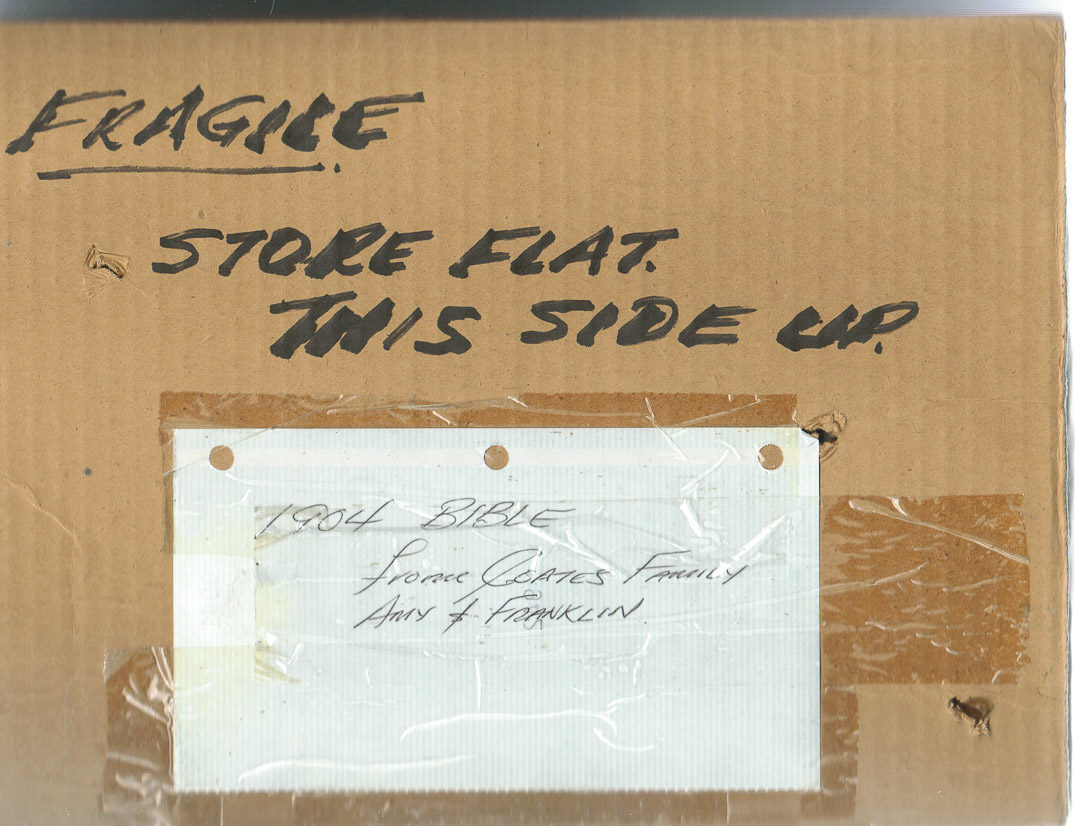 FRAGILE.
STORE FLAT.
THIS SIDE UP.
1904 BIBLE
from COATES FAMILY
AMY & FRANKLIN.